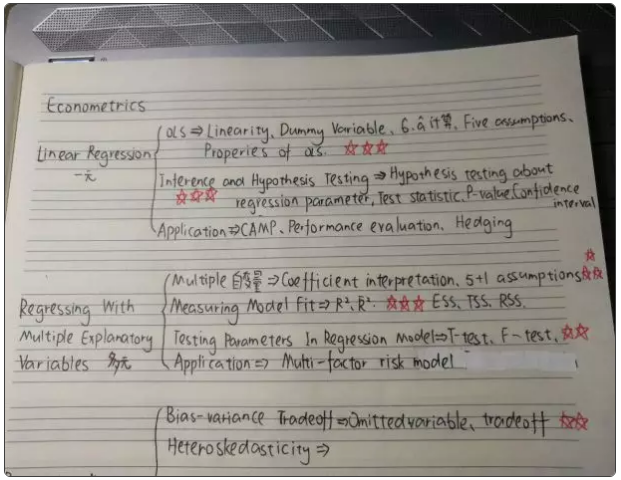 Econometrics
OLS ⇒ Linearity、Dummy Variable、6.â计算、Five assumptions、
Linear Regression
Properies of OLS. ☆☆☆
一元
Inference and Hypothesis Testing ⇒ Hypothesis testing about
☆☆☆ regression parameter, Test statistic. P-value. Confidence
interval
Application ⇒ CAMP、Performance evaluation、Hedging
Multiple 自变量 ⇒ Coefficient interpretation、5+1 assumptions ☆☆☆
Regressing With
Measuring Model Fit ⇒ R², R̄². ☆☆☆ ESS. TSS. RSS.
Multiple Explanatory
Testing Parameters In Regression Model ⇒ T-test、F-test、☆☆
Variables 多元
Application ⇒ Multi-factor risk model
Bias-variance Tradeoff ⇒ Omitted variable、tradeoff ☆☆
Heteroskedasticity ⇒